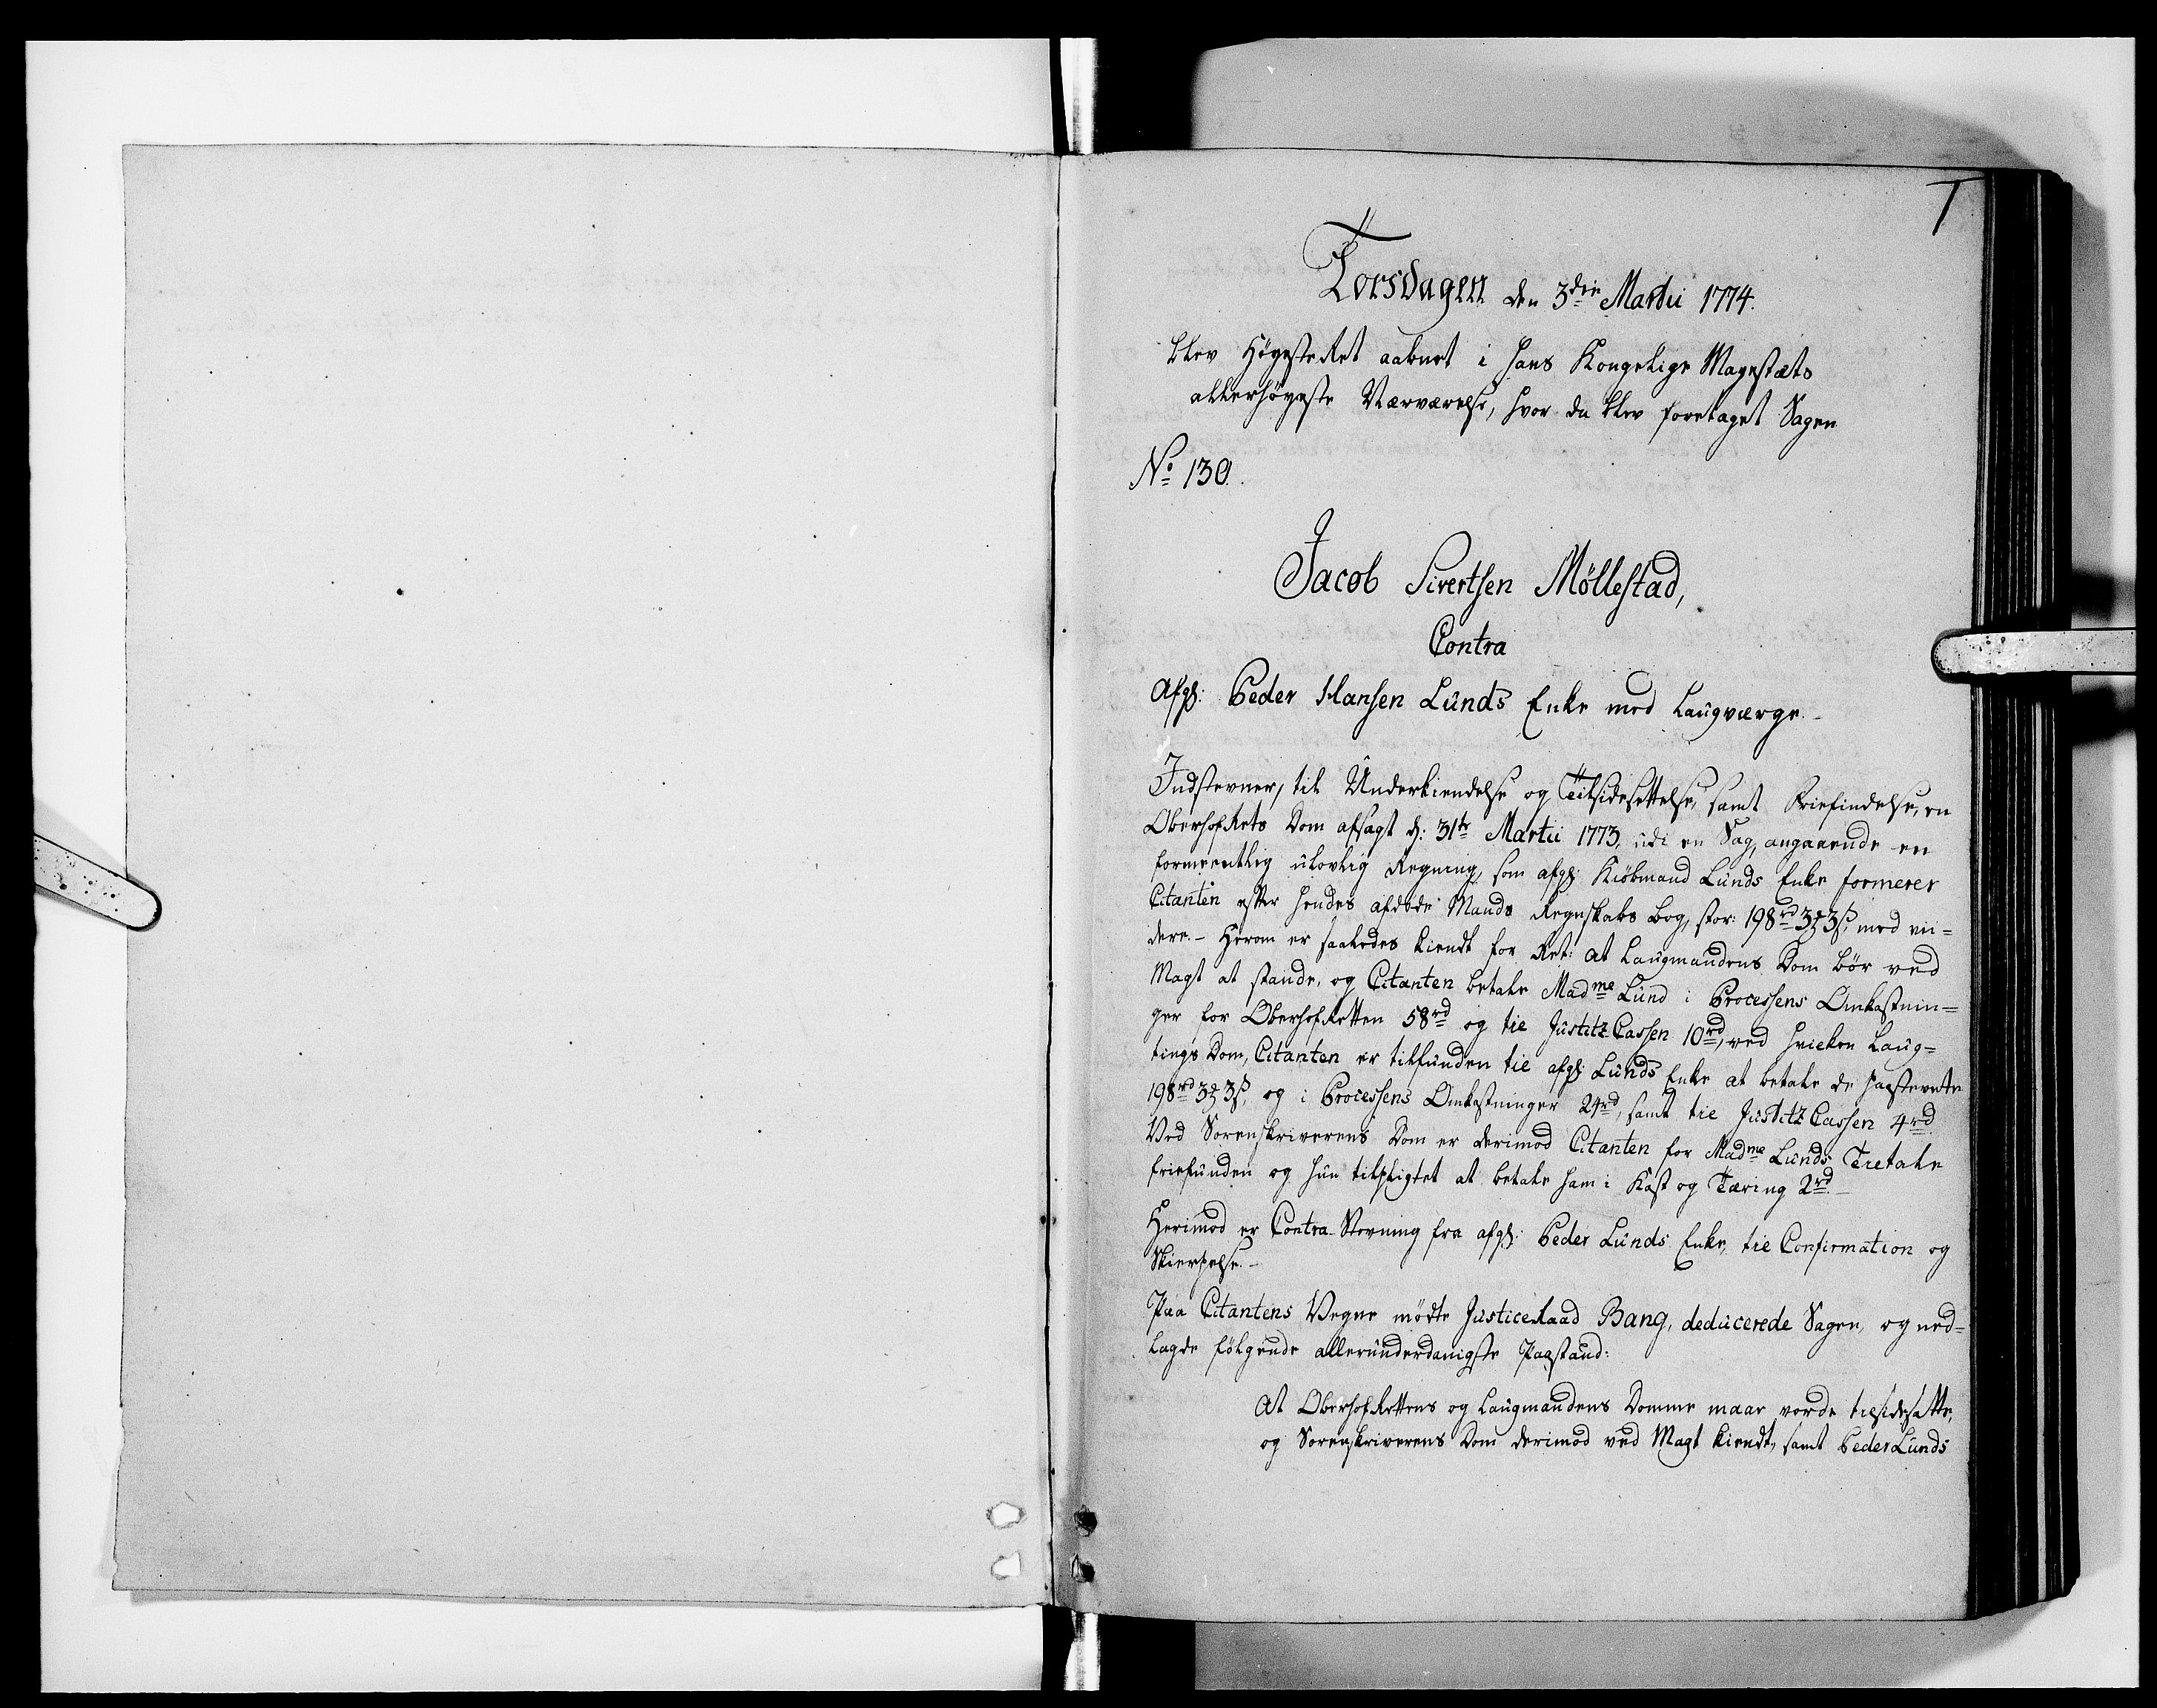 1
Torsdagen den 3die Martii 1774.
blev HøyesteRet aabnet i Hans Kongelige Mayestæts
allerhøyeste Nærværelse, hvor da blev foretaget Sagen
No 130.
Jacob Sivertsen Möllestad,
Contra
Afg: Peder Hansen Lunds Enke med Laugværge.
Indstevner, til Underkiendelse og Tilsidesettelse, samt Friefindelse, en
OberhofRets Dom afsagt d: 31te Martii 1773, udi en Sag, angaaende en
formeentlig ulovlig Regning, som afg: Kiöbmand Lunds Enke formerer
Citanten efter hendes afdøde Mands Regnskabs Bog, stor: 198rd 3 ₰ 3 ß, med vii=
dere. – Herom er saaledes kiendt for Ret: At Laugmandens Dom bör ved
Magt at stande, og Citanten betale Madme Lund i Processens Omkostnin=
ger for OberhofRetten 58rd og til Justitz Cassen 10rd, ved hvilken Laug=
tings Dom, Citanten er tilfunden til afg: Lunds Enke at betale de paastevnte
198rd 3 ₰ 3 ß, og i Processens Omkostninger 24rd, samt til Justitz Cassen 4rd
Ved Sorenskriverens Dom er derimod Citanten for Madme Lunds Tiltale
friefunden og hun tilpligtet at betale ham i Kost og Tæring 2rd. –
Herimod er Contra-Stevning fra afg: Peder Lunds Enke, til Confirmation og
Skierpelse. –
Paa Citantens Vegne mödte JusticeRaad Bang, deducerede Sagen, og ned=
lagde fölgende allerunderdanigste Paastand:
At OberhofRettens og Laugmandens Domme maae vorde tilsidesatte,
og Sorenskriverens Dom derimod ved Magt kiendt, samt Peder Lunds